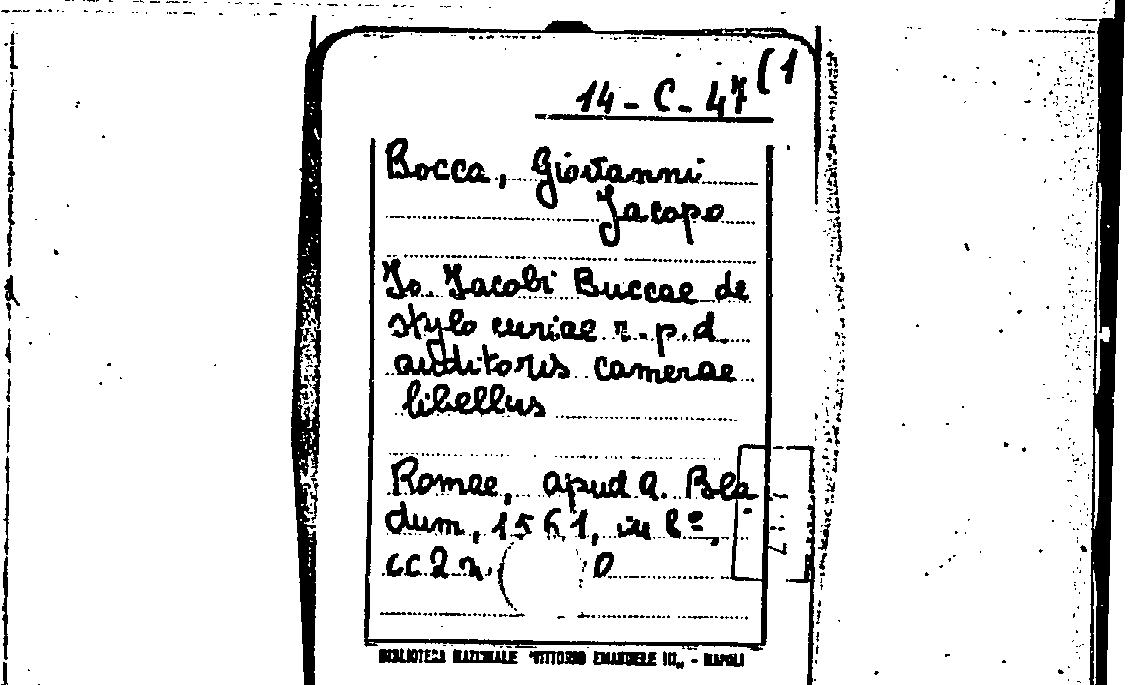 14-C-47 (1
Bocca, Giovanni
Jacopo
Jo. Jacobi Buccae de
stylo curiae r.p.d.
auditoris camerae
libellus
Romae, apud A. Bla
dum, 1561, in 8º.
cc 2 n.
BIBLIOTECA NAZIONALE "VITTORIO EMANUELE III" - NAPOLI